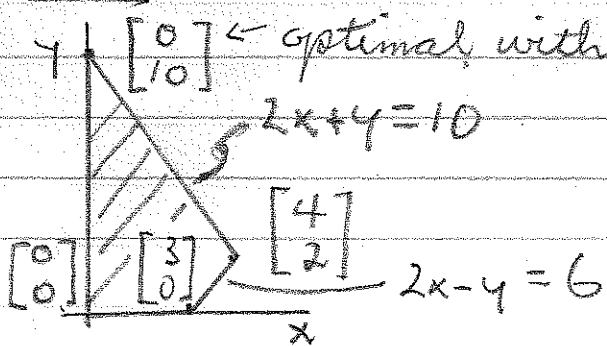 y [0 10] ← optimal with
2x+y=10
[4 2]
[0 0] [3 0] 2x-y=6
x